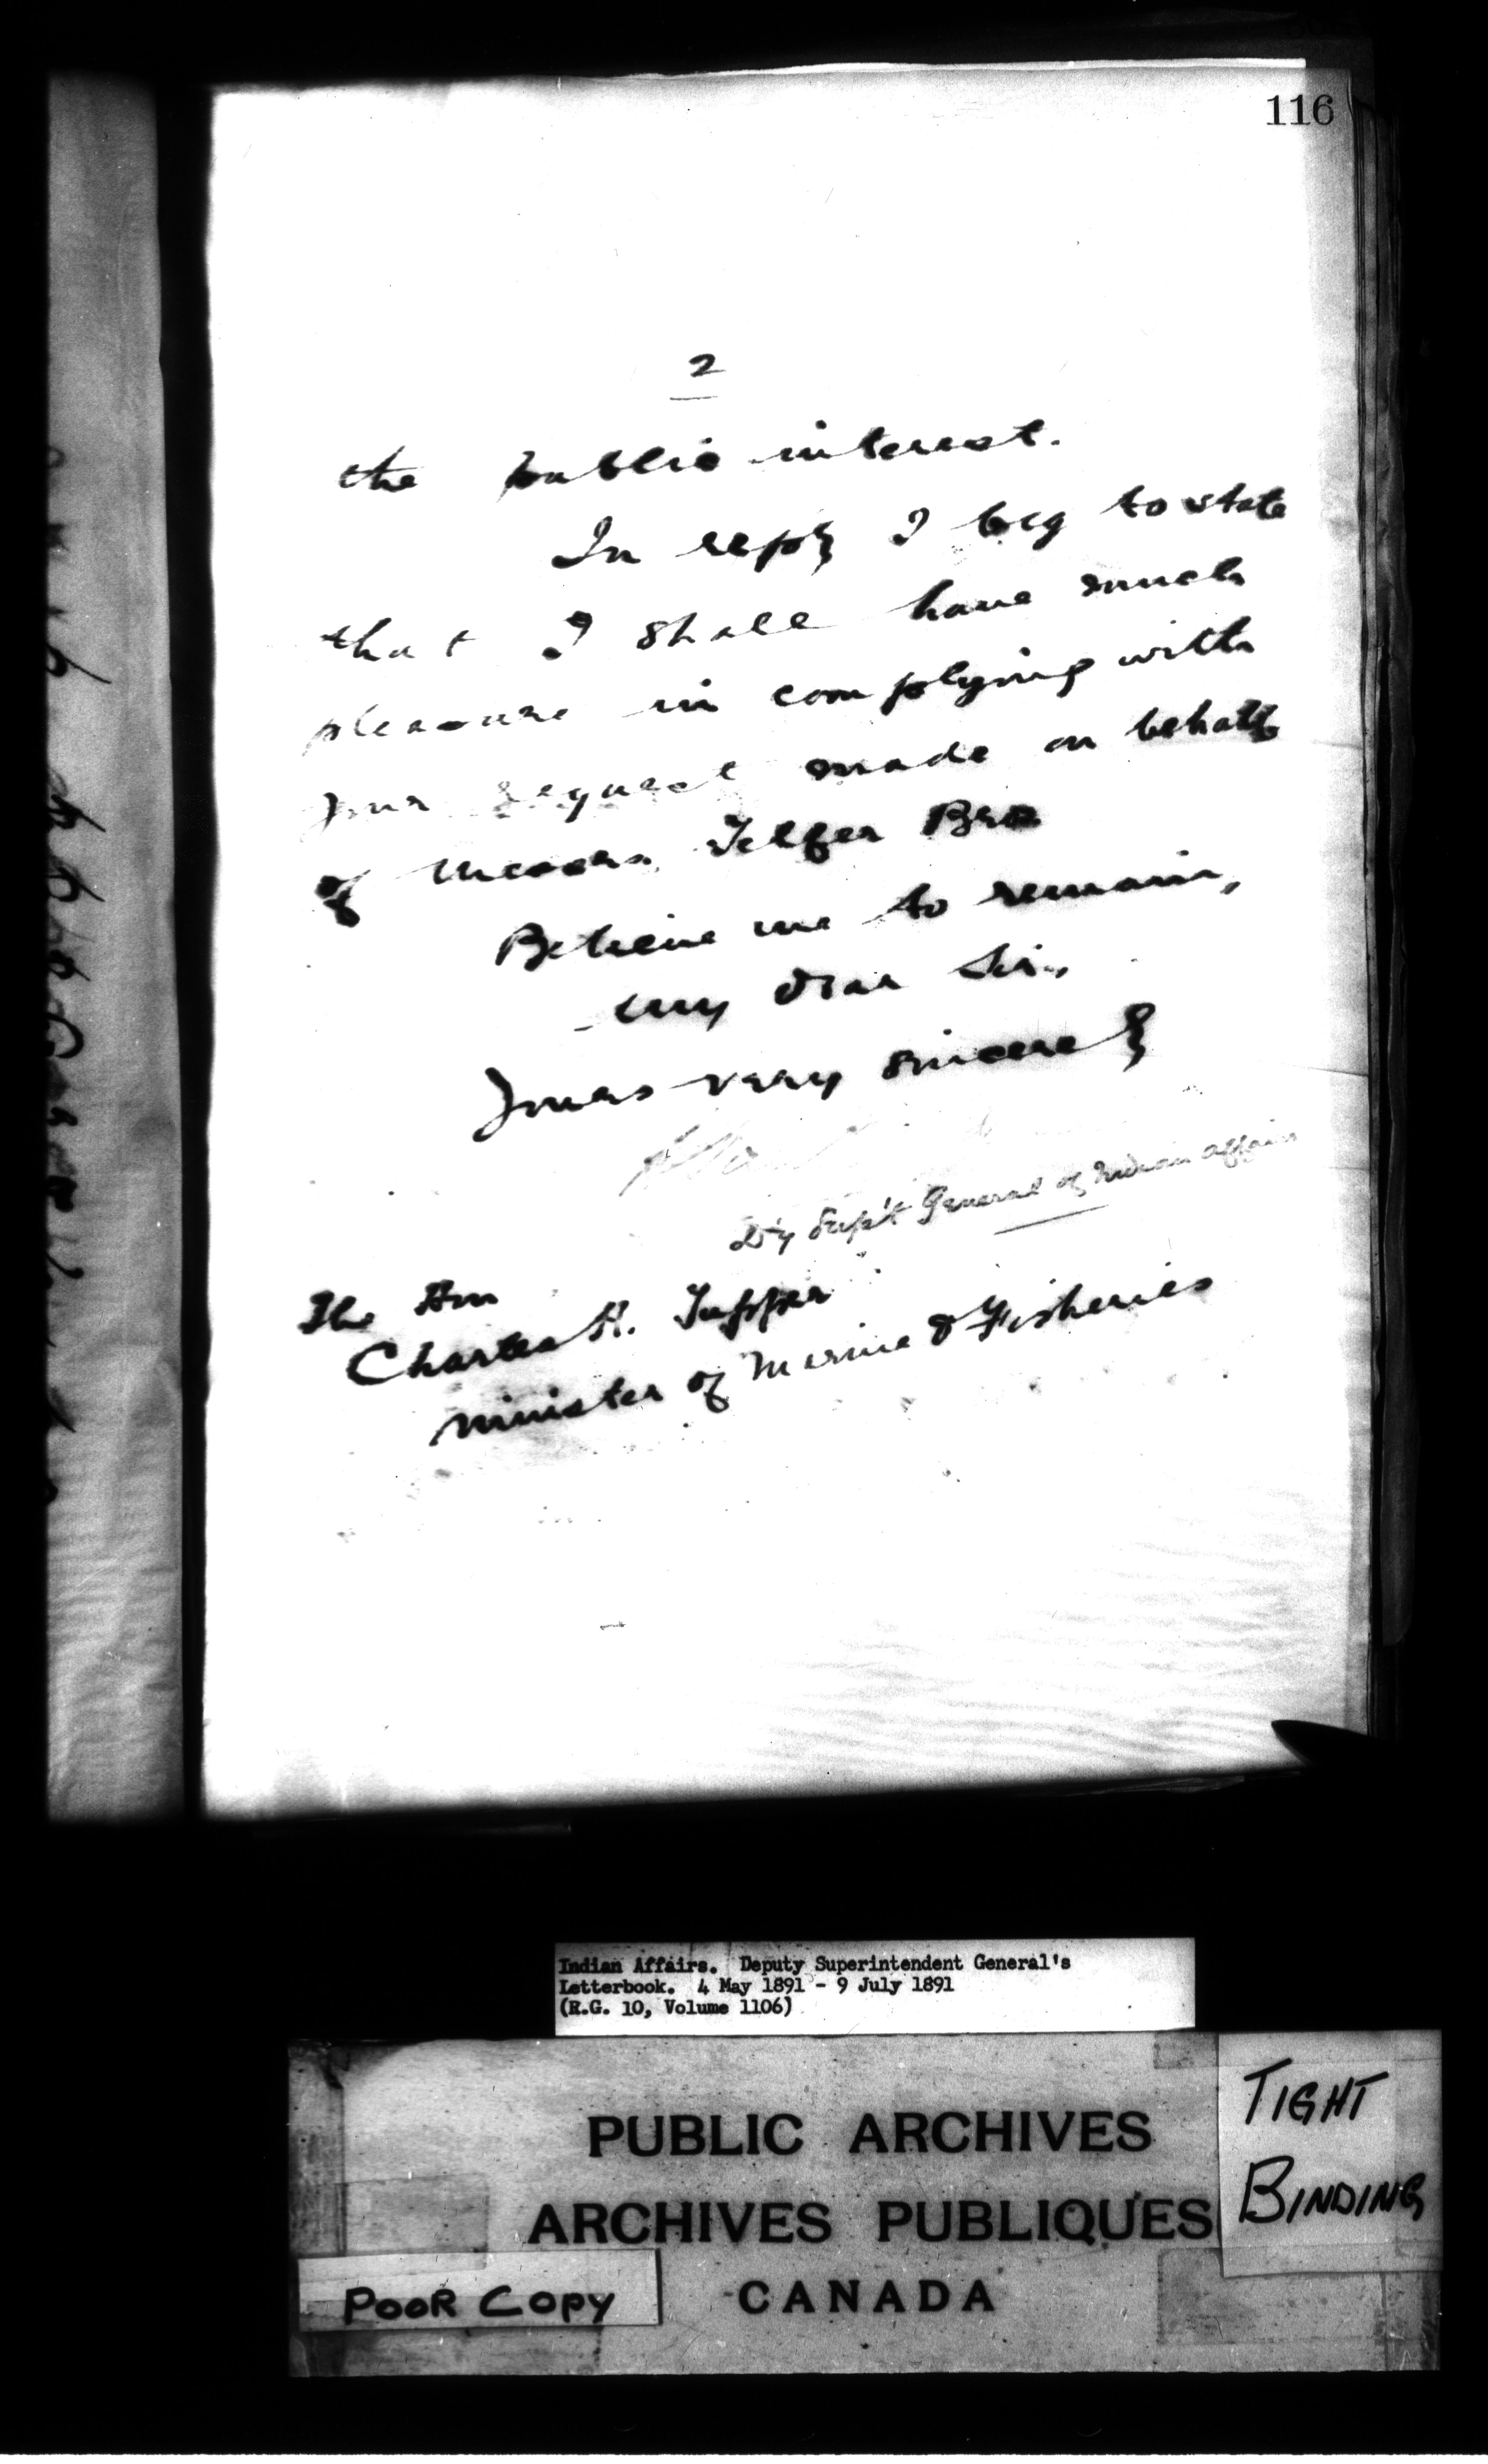 116
2
the public interest.
In reply I beg to state
that I shall have much
pleasure in complying with
your request made on behalf
of Messrs. Telfer Bro
Believe me to remain,
my dear Sir,
Yours very sincerely
D'y Sup't General of Indian Affairs
The Hon
Charles H. Tupper
Minister of Marine & Fisheries
Indian Affairs. Deputy Superintendent General's
Letterbook. 4 May 1891 - 9 July 1891
(R.G. 10, Volume 1106)
PUBLIC ARCHIVES
ARCHIVES PUBLIQUES
CANADA
TIGHT
BINDING
POOR COPY